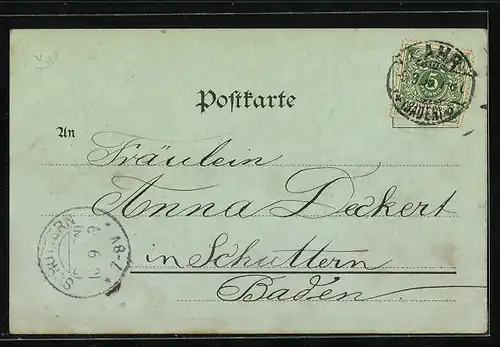 Postkarte
An
Fräulein
Anna Deckert
in Schuttern
Baden.
5
LAHR
(BADEN)
SCHUTTERN